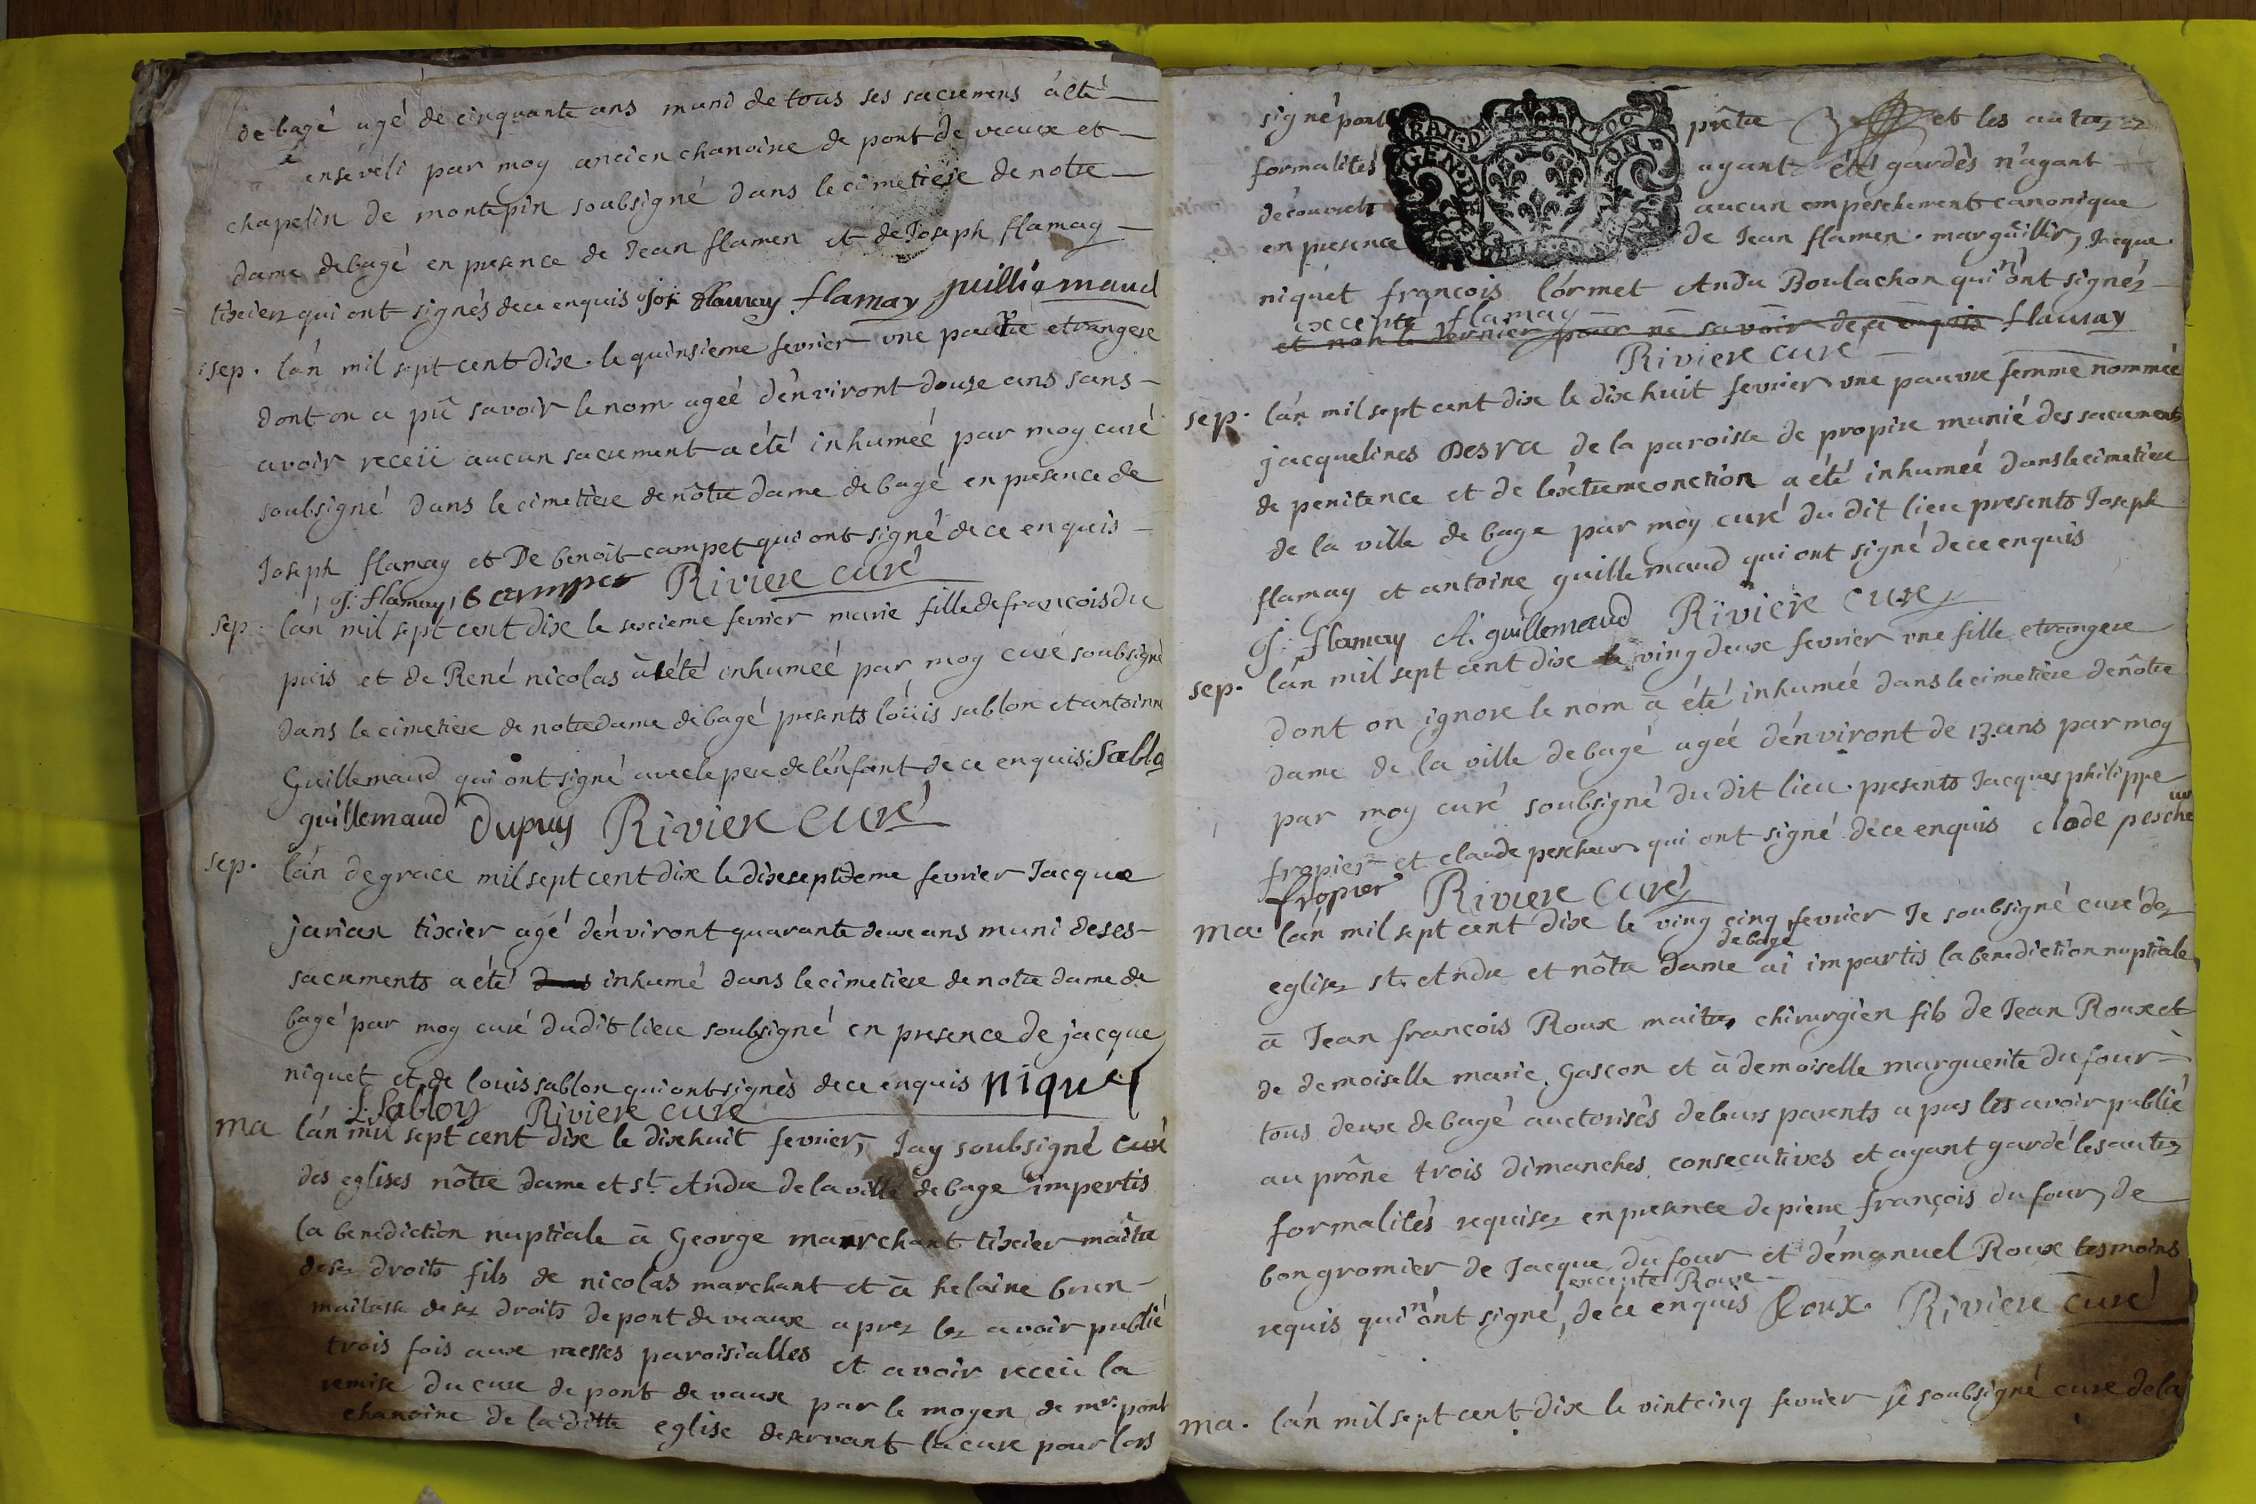 de bagé agé de cinquante ans muni de tous ses sacremens a été
enseveli par moy ancien chanoine de pont de veaux et
chapelin de montepin soubsigné dans le cimetiere de notre
dame de bagé en presence de Jean flamen et de Joseph flamay
tixier qui ont signés de ce enquis Jos flamay flamay guilliemaud
sep. lán mil sept cent dixe le quinsieme fevrier une pauvre etrangere
dont on a pû savoir le nom agéé dénviront douze ans sans
avoir receü aucun sacrement a été inhumeé par moy curé
soubsigné dans le cimetière de nôtre dame de bagé en presence de
Joseph flamay et De benoit campet qui ont signé de ce enquis
J: flamay, B campet Riviere curé
sep. lán mil sept cent dixe le sexieme fevrier marie fille de francois du
puis et de René nicolas a été inhumeé par moy curé soubsigné
dans le cimetiere de notre dame de bagé presents loüis sablon et antoinne
Guillemaud qui ont signé avec le pere de lénfant de ce enquis Sablo
guillemaud Dupuy Riviere curé
sep. lán de grace mil sept cent dixe le dixeseptieme fevrier Jacque
jariax tixier agé dénviront quarante deux ans muni de ses
sacrements a été dans inhumé dans le cimetiere de notre dame de
bagé par moy curé dudit lieu soubsigné en presence de jacque
niquet et de louis sablon qui ont signès de ce enquis niquet
L. Sablon Riviere cure
ma lán mil sept cent dixe le dixehuit fevrier, Jay soubsigné curé
des eglises nôtre dame et st Andre de la ville de bage impertis
la benediction nuptiale a George marchant tixier maître
de sez droits fils de nicolas marchant et a helaine brun
maitresse de sez droits de pont de veaux aprez lez avoir publié
trois fois aux messes paroisialles et avoir receü la
remise du cure de pont de vaux par le moyen de mr. pont
chanoine de la ditte eglise deservant la cure pour lors
signé pont prêtre et les autrez
formalités ayant été gardès n'ayant
découvert aucun empeschement canonique
en presence de Jean flamen marguillir, Jacque
niquét françois lórmet Andre Boulachon qui n'ont signéz
excepté flamay
et non le dernier pour ne savoir de ce enquis flamay
Riviere curé
sep. lán mil sept cent dixe le dixe huit fevrier une pauvre femme nommeé
jacquelines Desra de la paroisse de propire munié des sacrements
de penitence et de léxtremeonction a été inhumeé dans le cimetiere
de la ville de bage par moy curé du dit lieu presents Joseph
flamay et antoine guillemaud qui ont signé de ce enquis
J: flamay A. guillemaud Riviere cure
sep. lán mil sept cent dixe le ving deux fevrier une fille etrangere
dont on ignore le nom a été inhumeé dans le cimetière de nôtre
dame de la ville de bagé ageé dénviront de 13. ans par moy
par moy curé soubsigné du dit lieu presents Jacques philippe
fropier et claude pescheur qui ont signé de ce enquis clode pescheur
fropier Riviere curé
ma. lán mil sept cent dixe le ving cinq fevrier Je soubsigné curé dez
de bagé
eglisez st. Andre et nôtre dame ai impartis la benediction nuptiale
a Jean francois Roux maitre chirurgien fils de Jean Roux et
de demoiselle marie Gascon et à demoiselle marguerite du four
tous deux de bagé auctorisés de leurs parents a pres les avoir publié
au prône trois dimanches consecutives et ayant gardé les autrez
formalités requisez en presence de pierre françois du four, de
bon gromier de Jacque du four et démanuel Roux tesmoins
excepte Roux
requis qui n'ont signé, de ce enquis Roux. Riviere curé
ma. lán mil sept cent dixe le vint cinq fevrier je soubsigné cure de la